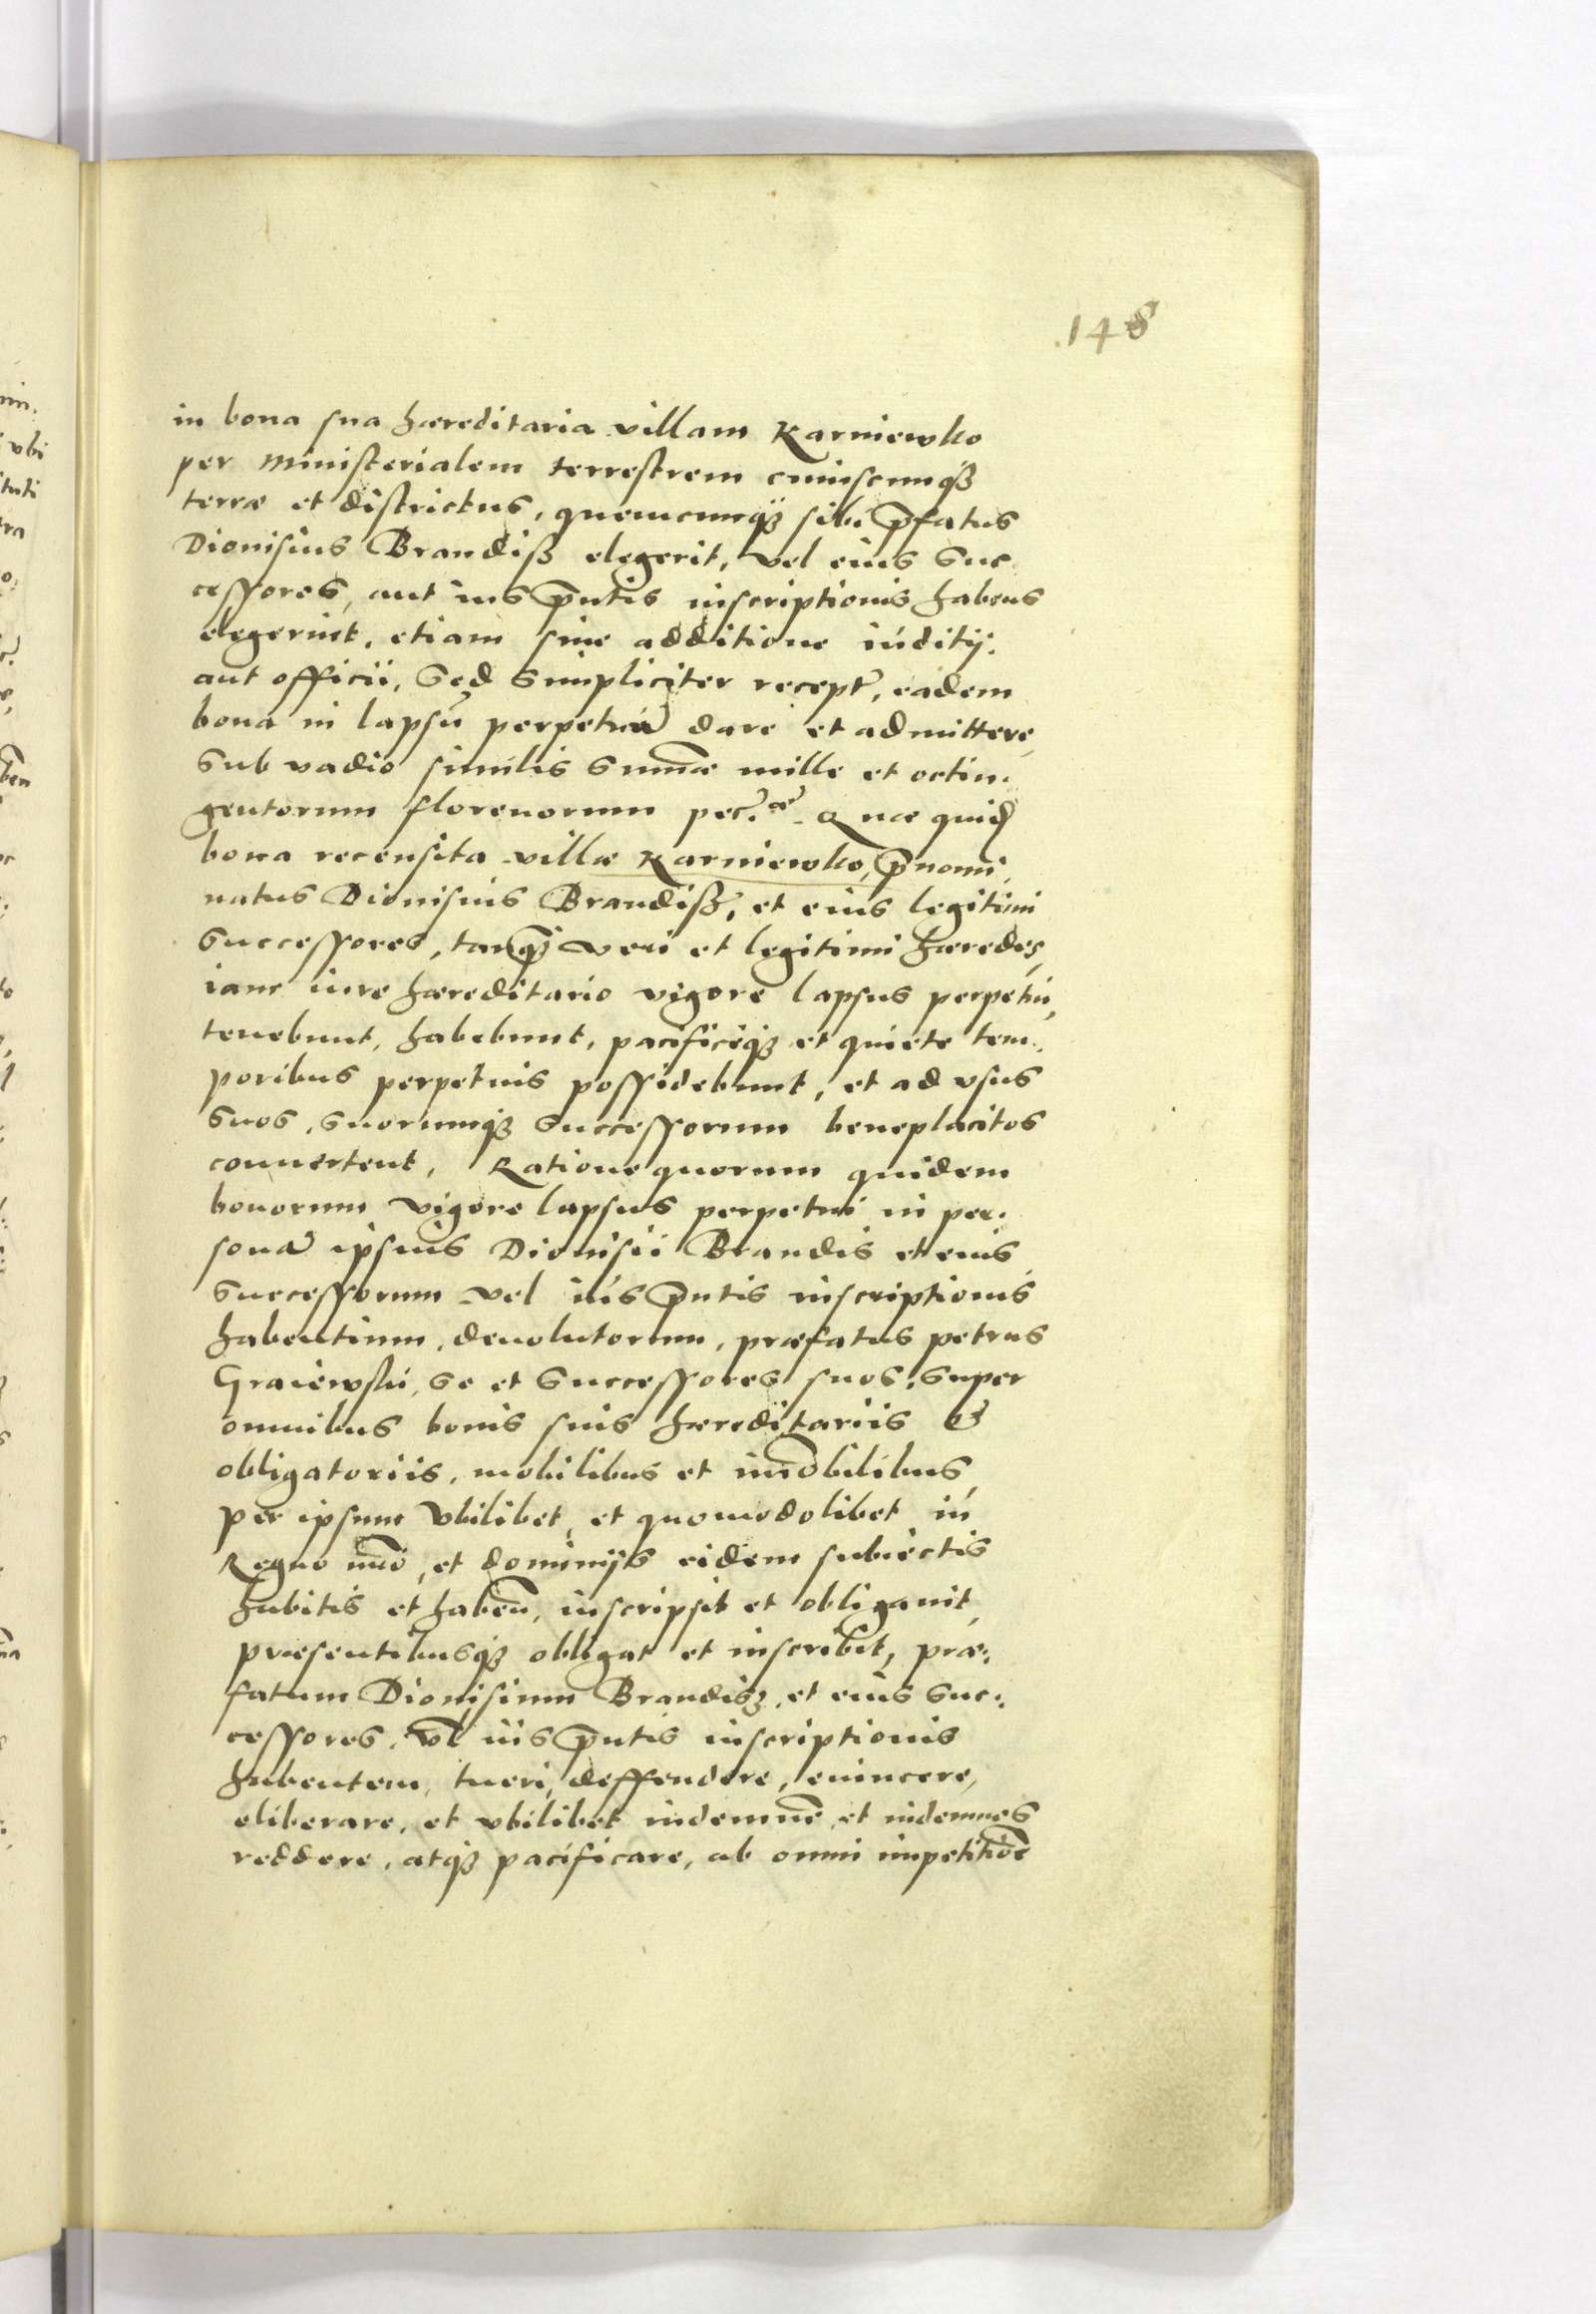 148
in bona sua hæreditaria villam Karniewko
per ministerialem terrestrem cuiuscunqȝ
terræ et districtus, quemcunqȝ sibi p̄fatus
Dionisius Brandiß elegerit, vel eius suc
cessores, aut ius p̄ntis inscriptionis habens
elegerint, etiam sine additione iuditij.
aut officii, sed simpliciter recept, eadem
bona in lapsū perpetuū dare et admittere,
sub vadio similis summæ mille et octin:
gentorum florenorum pec:æ. Quæ quid
bona recensita villæ Karniewko, p̄nomi,
natus Dionisius Brandiß, et eius legitimi
successores, tanqȝ veri et legitimi hæredes,
iam iure hæreditario vigore lapsus perpetui,
tenebunt, habebunt, pacificeqȝ et quiete tem:
poribus perpetuis possidebunt, et ad vsus
suos, suorumqȝ successorum beneplacitos
conuertent, Ratione quorum quidem
bonorum vigore lapsus perpetui in per:
sonā ipsius Dionisii Brandis et eius
successorum vel ius p̄ntis inscriptionis
habentium, deuolutorum, præfatus petrus
Graiewski, se et successores suos, super
omnibus bonis suis hæreditariis &
obligatoriis, mobilibus et im̄obilibus,
per ipsum vbilibet, et quomodolibet in
Regno nr̄o, et dominijs eidem subiectis
habitis et haben̄, inscripsit et obligauit,
præsentibusqȝ obligat et inscribit, præ:
fatum Dionisium Brandisȝ, et eius suc:
cessores, vl̄ ius p̄ntis inscriptionis
habentem, tueri, deffendere, euincere,
eliberare, et vbilibet indemnē, et indemnes
reddere, atqȝ pacificare, ab omni impetitiōe